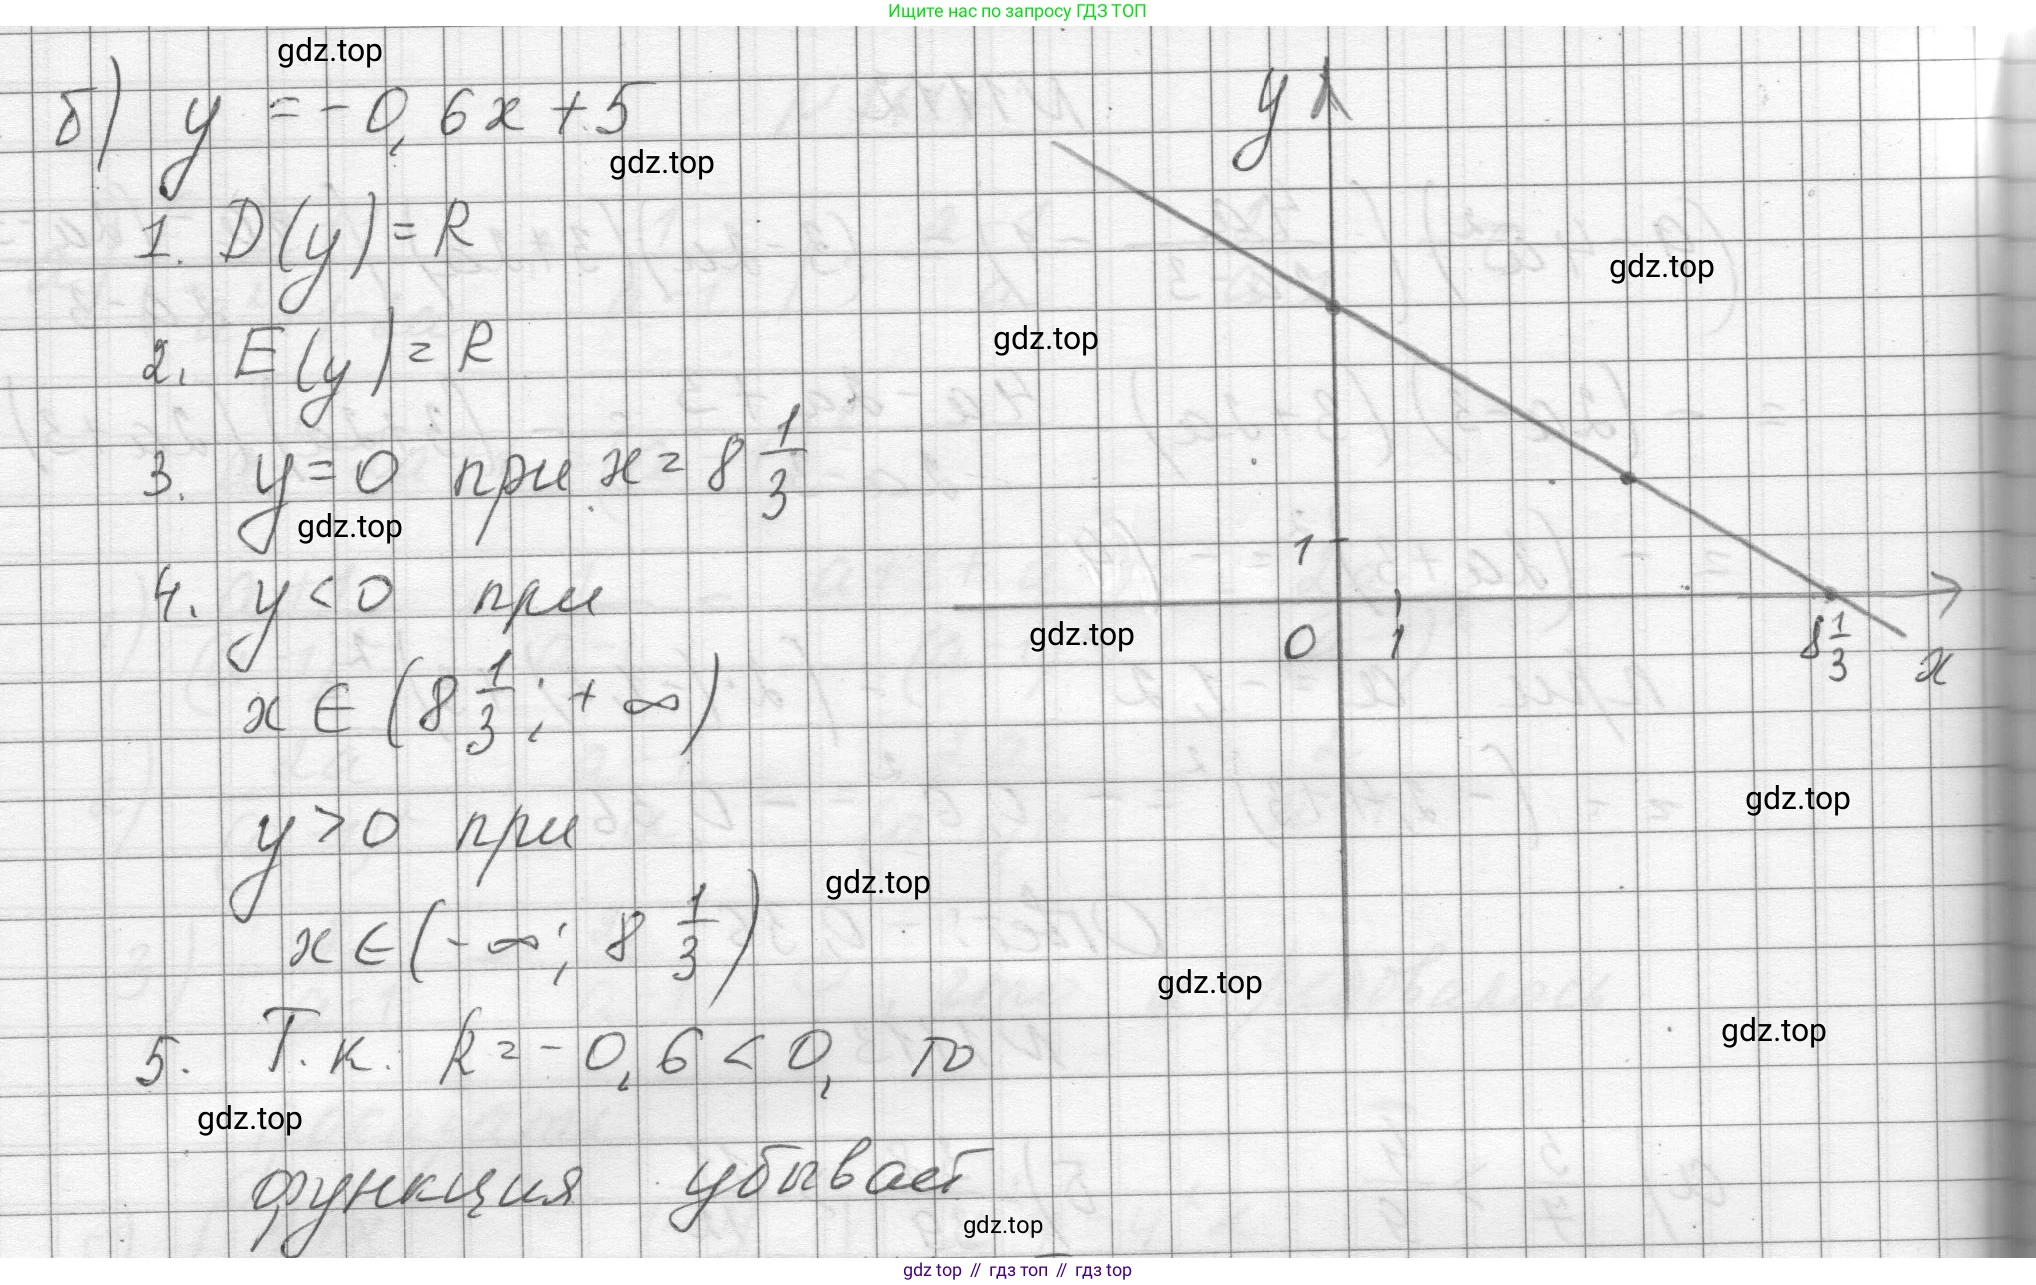 Ищите нас по запросу ГДЗ ТОП
gdz.top
б) y = -0,6x + 5
gdz.top
1. D(y) = R
gdz.top
2. E(y) = R
gdz.top
3. y = 0 при x = 8 1/3
gdz.top
4. y < 0 при
x ∈ (8 1/3; +∞)
y > 0 при
gdz.top
x ∈ (-∞; 8 1/3)
5. Т.к. k = -0,6 < 0, то
gdz.top
функция убывает
gdz.top
y
1
0
1
8 1/3
x
gdz.top
gdz.top
gdz.top
gdz.top
gdz top // гдз топ // гдз top